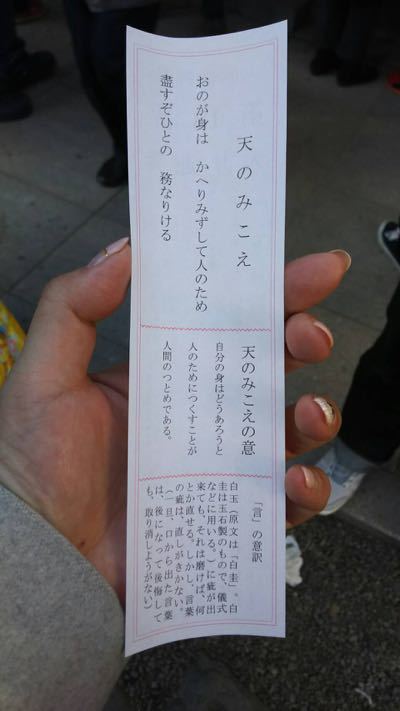 天のみこえ
おのが身は　かへりみずして人のため
盡すぞひとの　務なりける
天のみこえの意
自分の身はどうあろうと
人のためにつくすことが
人間のつとめである。
「言」の意訳
白玉（原文は「白圭」。白
圭は玉石製のもので、儀式
などに用いる。）に疵が出
来ても、それは磨けば、何
とか直せる。しかし、言葉
の疵は、直しがきかない。
（一旦、口から出た言葉
は、後になって後悔して
も、取り消しようがない）